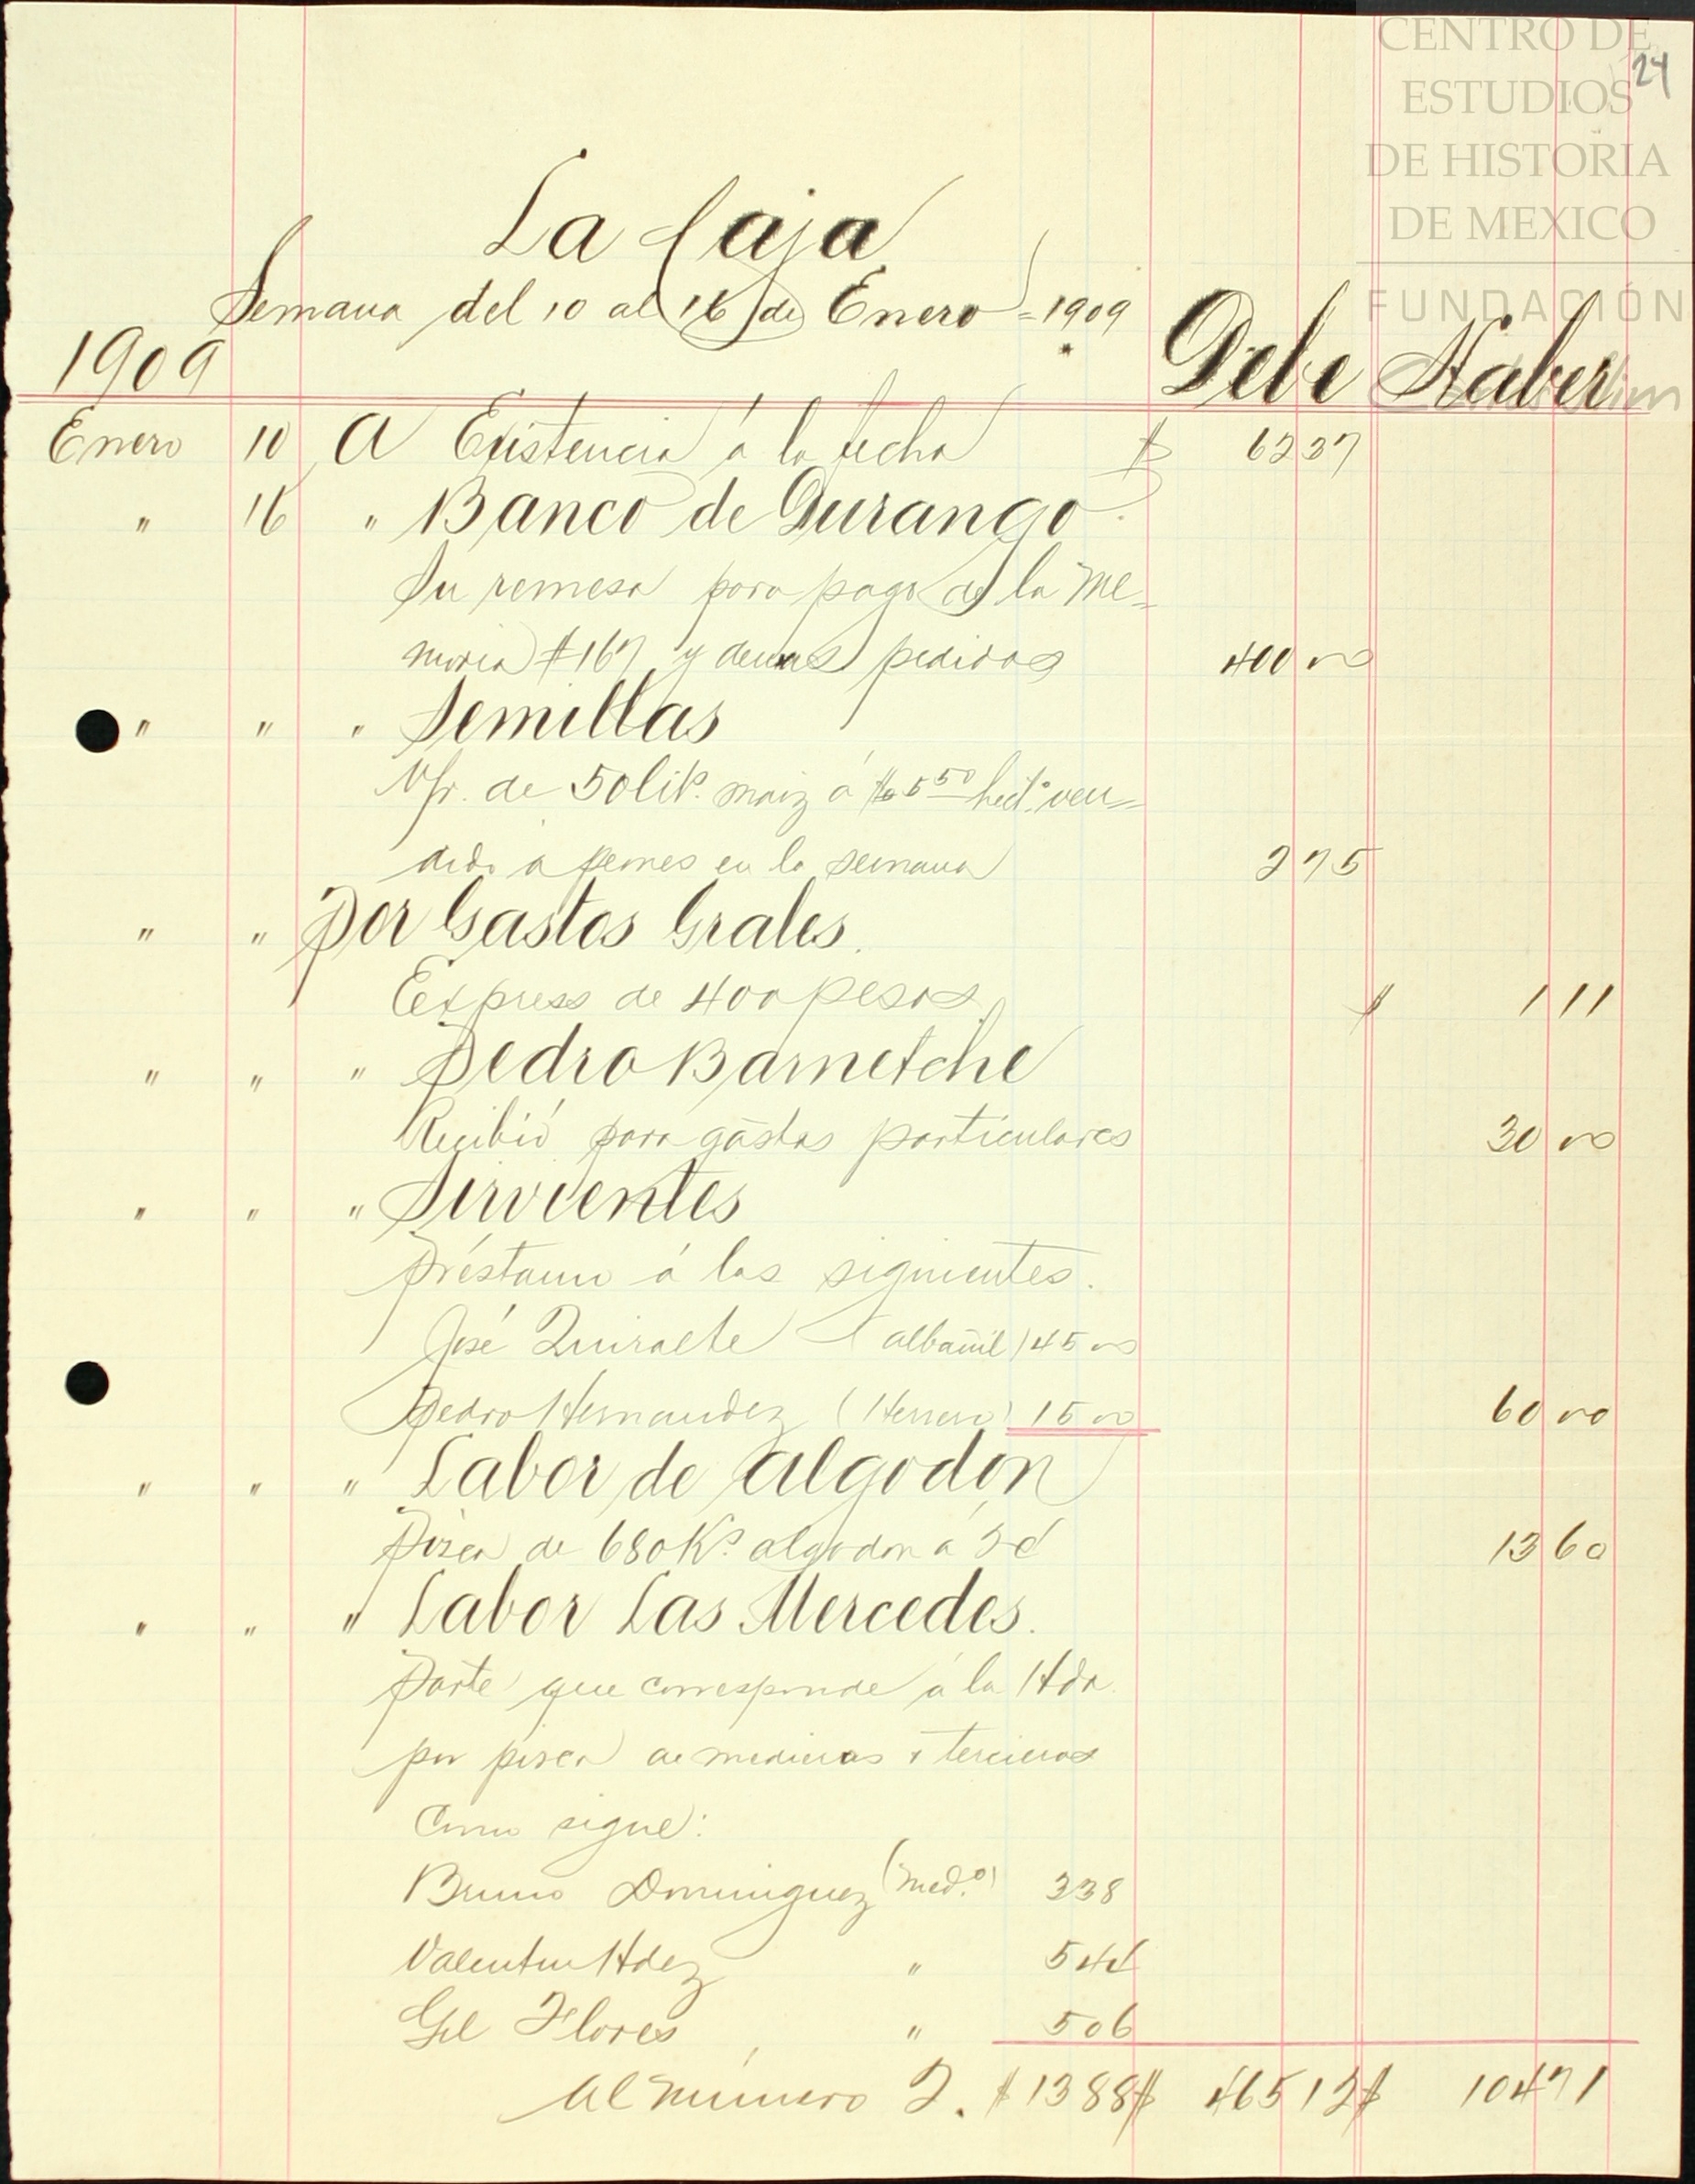 CENTRO DE
ESTUDIOS
DE HISTORIA
DE MEXICO
FUNDACIÓN
24
La Caja
Semana del 10 al 16 de Enero = 1909
1909 Debe Haber
Enero 10 A Existencia á la fecha $ 62 37
" 16 " Banco de Durango.
Su remesa para pago de la Me-
moria #167 y demas pedidos 400 00
" " " Semillas
V/r. de 50 lit.s maiz á $5 50 hect.o ven=
dido á peones en la semana 2 75
" " Por Gastos Grales.
Express de 400 pesos. $ 1 11
" " " Pedro Barnetche
Recibió para gastos particulares 30 00
" " " Sirvientes
Préstamo á los siguientes.
José Quiralte (albañil) 45 00
Pedro Hernandez (Herrero) 15 00 60 00
" " " Labor de Algodon
Pisca de 680 K.s algodon á 2¢ 13 60
" " " Labor Las Mercedes.
Parte que corresponde á la Hda.
por pisca de medieros y tercieros
como sigue:
Bruno Dominguez (Med.o) 3 38
Valentin Hdez " 5 44
Gil Flores " 5 06
Al número 2. $ 13 88 $ 465 12 $ 104 71